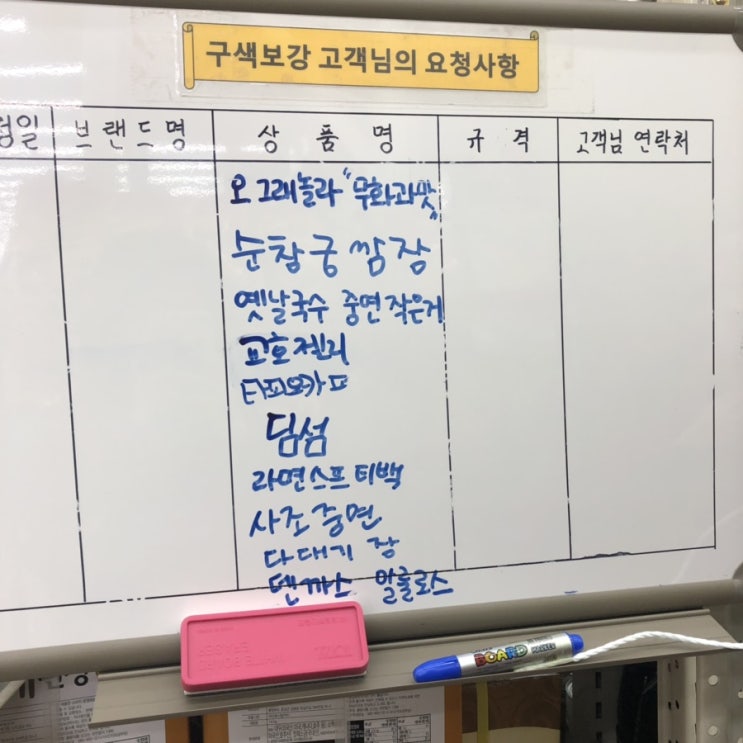 구색보강 고객님의 요청사항
브랜드명 상품명 규격 고객님 연락처
오그래놀라 "무화과맛"
순창궁쌈장
옛날국수 중면 작은거
교호젤리
타피오카프
딤섬
라면스프 티백
사조중면
다대기 장
덴까스 알룰로스
BOARD